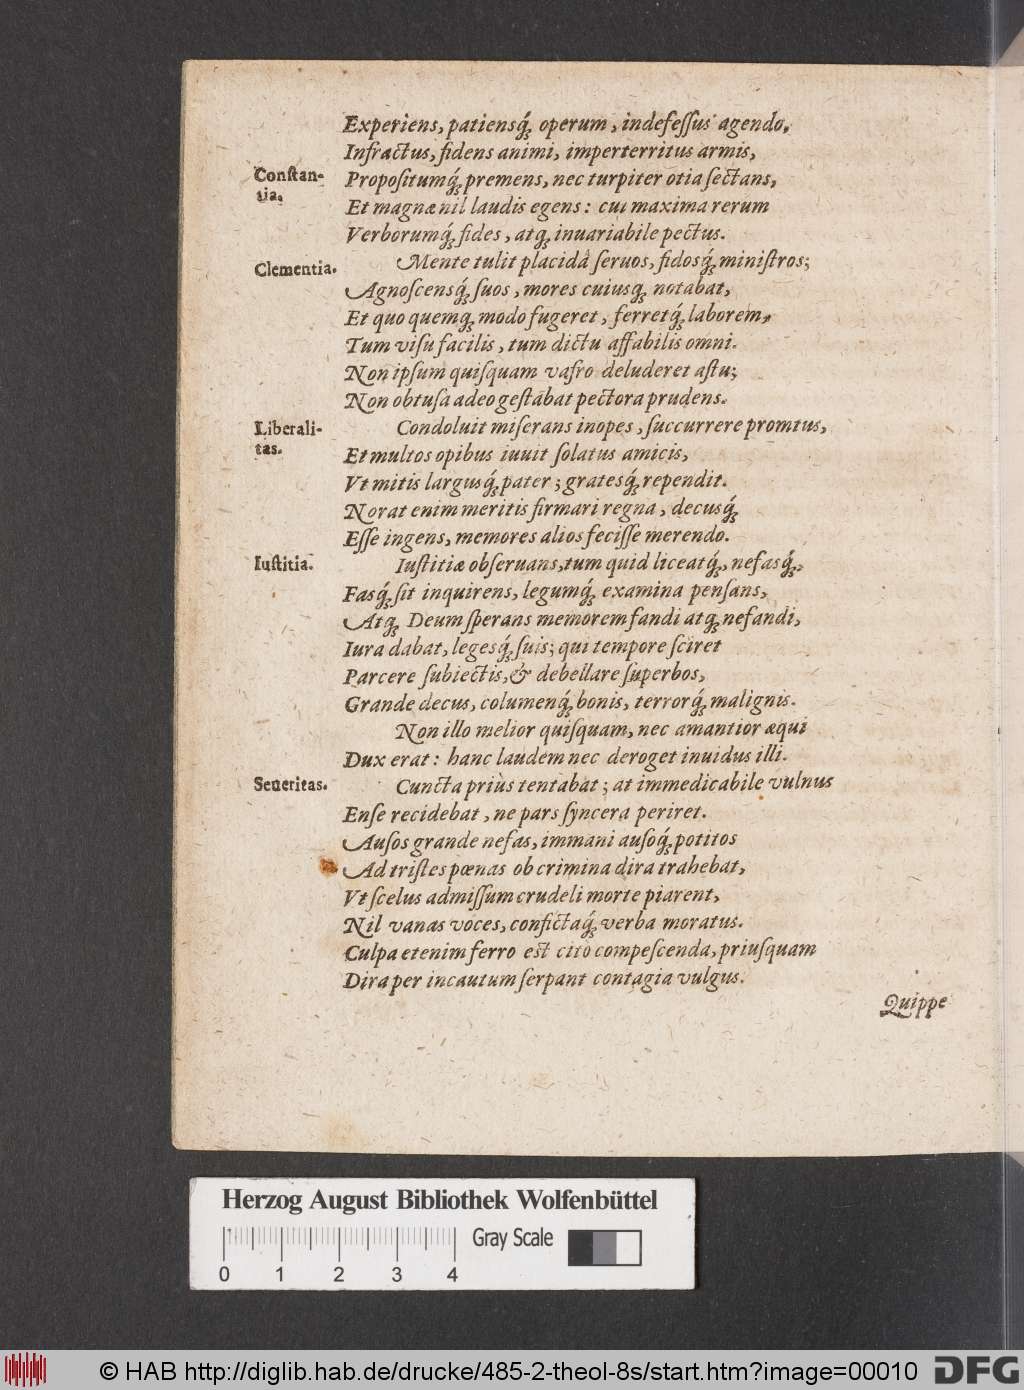 Experiens, patiensq́ꝫ operum, indefeſſus agendo,
Infractus, fidens animi, imperterritus armis,
Conſtan-
tia.
Propoſitumq́ꝫ premens, nec turpiter otia ſectans,
Et magnæ nil laudis egens: cui maxima rerum
Verborumq́ꝫ fides, atqꝫ inuariabile pectus.
Clementia.
Mente tulit placidâ ſeruos, fidosq́ꝫ miniſtros;
Agnoſcensq́ꝫ ſuos, mores cuiusqꝫ notabat,
Et quo quemqꝫ modo fugeret, ferretq́ꝫ laborem,
Tum viſu facilis, tum dictu affabilis omni.
Non ipſum quiſquam vafro deluderet aſtu;
Non obtuſa adeo geſtabat pectora prudens.
Liberali-
tas.
Condoluit miſerans inopes, ſuccurrere promtus,
Et multos opibus iuuit ſolatus amicis,
Vt mitis largusq́ꝫ pater; gratesq́ꝫ rependit.
Norat enim meritis firmari regna, decusq́ꝫ
Eſſe ingens, memores alios feciſſe merendo.
Iuſtitia.
Iuſtitiæ obſeruans, tum quid liceatq́ꝫ, nefasq́ꝫ,
Fasq́ꝫ ſit inquirens, legumq́ꝫ examina penſans,
Atqꝫ Deum ſperans memorem fandi atqꝫ nefandi,
Iura dabat, legesq́ꝫ ſuis; qui tempore ſciret
Parcere ſubiectis, & debellare ſuperbos,
Grande decus, columenq́ꝫ bonis, terrorq́ꝫ malignis.
Non illo melior quiſquam, nec amantior æqui
Dux erat: hanc laudem nec deroget inuidus illi.
Seueritas.
Cuncta priùs tentabat; at immedicabile vulnus
Enſe recidebat, ne pars ſyncera periret.
Auſos grande nefas, immani auſoq́ꝫ potitos
Ad triſtes pœnas ob crimina dira trahebat,
Vt ſcelus admiſſum crudeli morte piarent,
Nil vanas voces, confictaq́ꝫ verba moratus.
Culpa etenim ferro est cito compeſcenda, priuſquam
Dira per incautum ſerpant contagia vulgus.
Quippe
Herzog August Bibliothek Wolfenbüttel
Gray Scale
0 1 2 3 4
© HAB http://diglib.hab.de/drucke/485-2-theol-8s/start.htm?image=00010
DFG